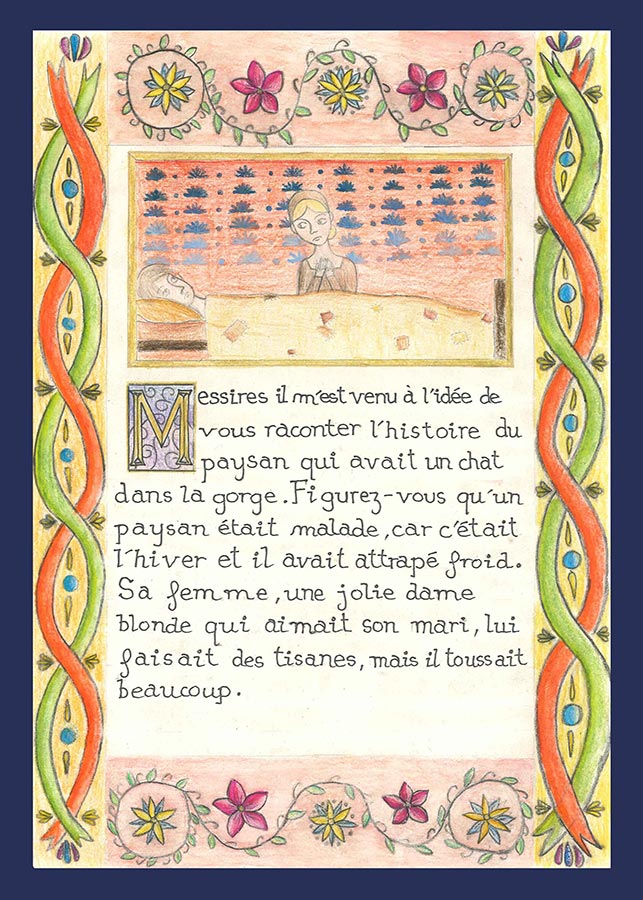 Messires il m'est venu à l'idée de
vous raconter l'histoire du
paysan qui avait un chat
dans la gorge. Figurez-vous qu'un
paysan était malade, car c'était
l'hiver et il avait attrapé froid.
Sa femme, une jolie dame
blonde qui aimait son mari, lui
faisait des tisanes, mais il toussait
beaucoup.